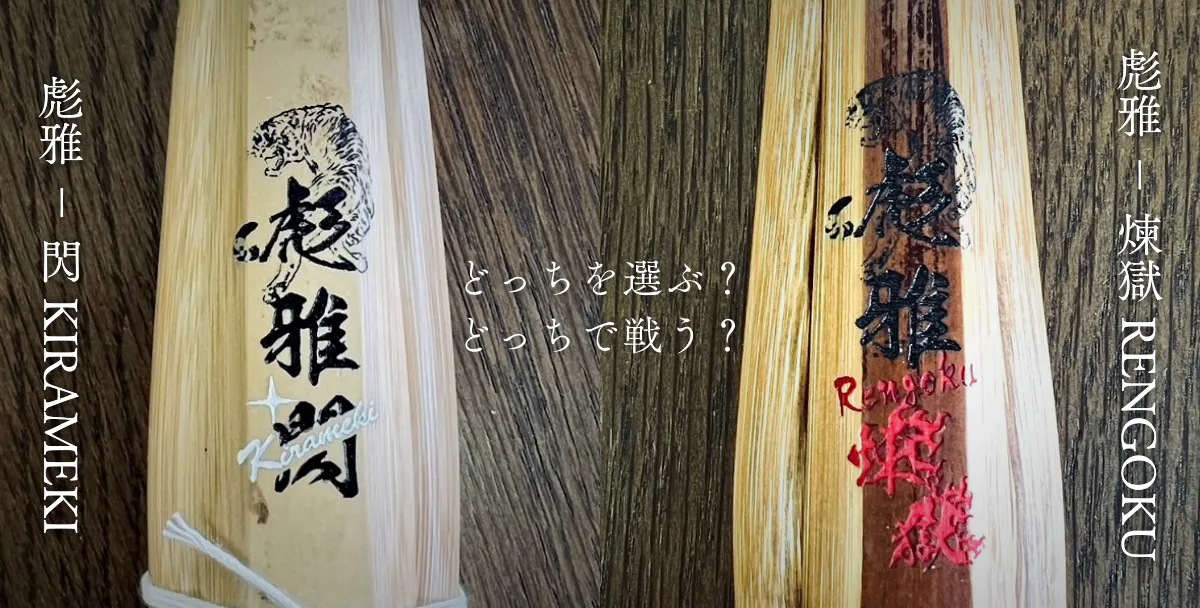 彪雅 – 閃 KIRAMEKI
彪
雅
閃
Kirameki
どっちを選ぶ？
どっちで戦う？
彪
雅
Rengoku
煉
獄
彪雅 – 煉獄 RENGOKU